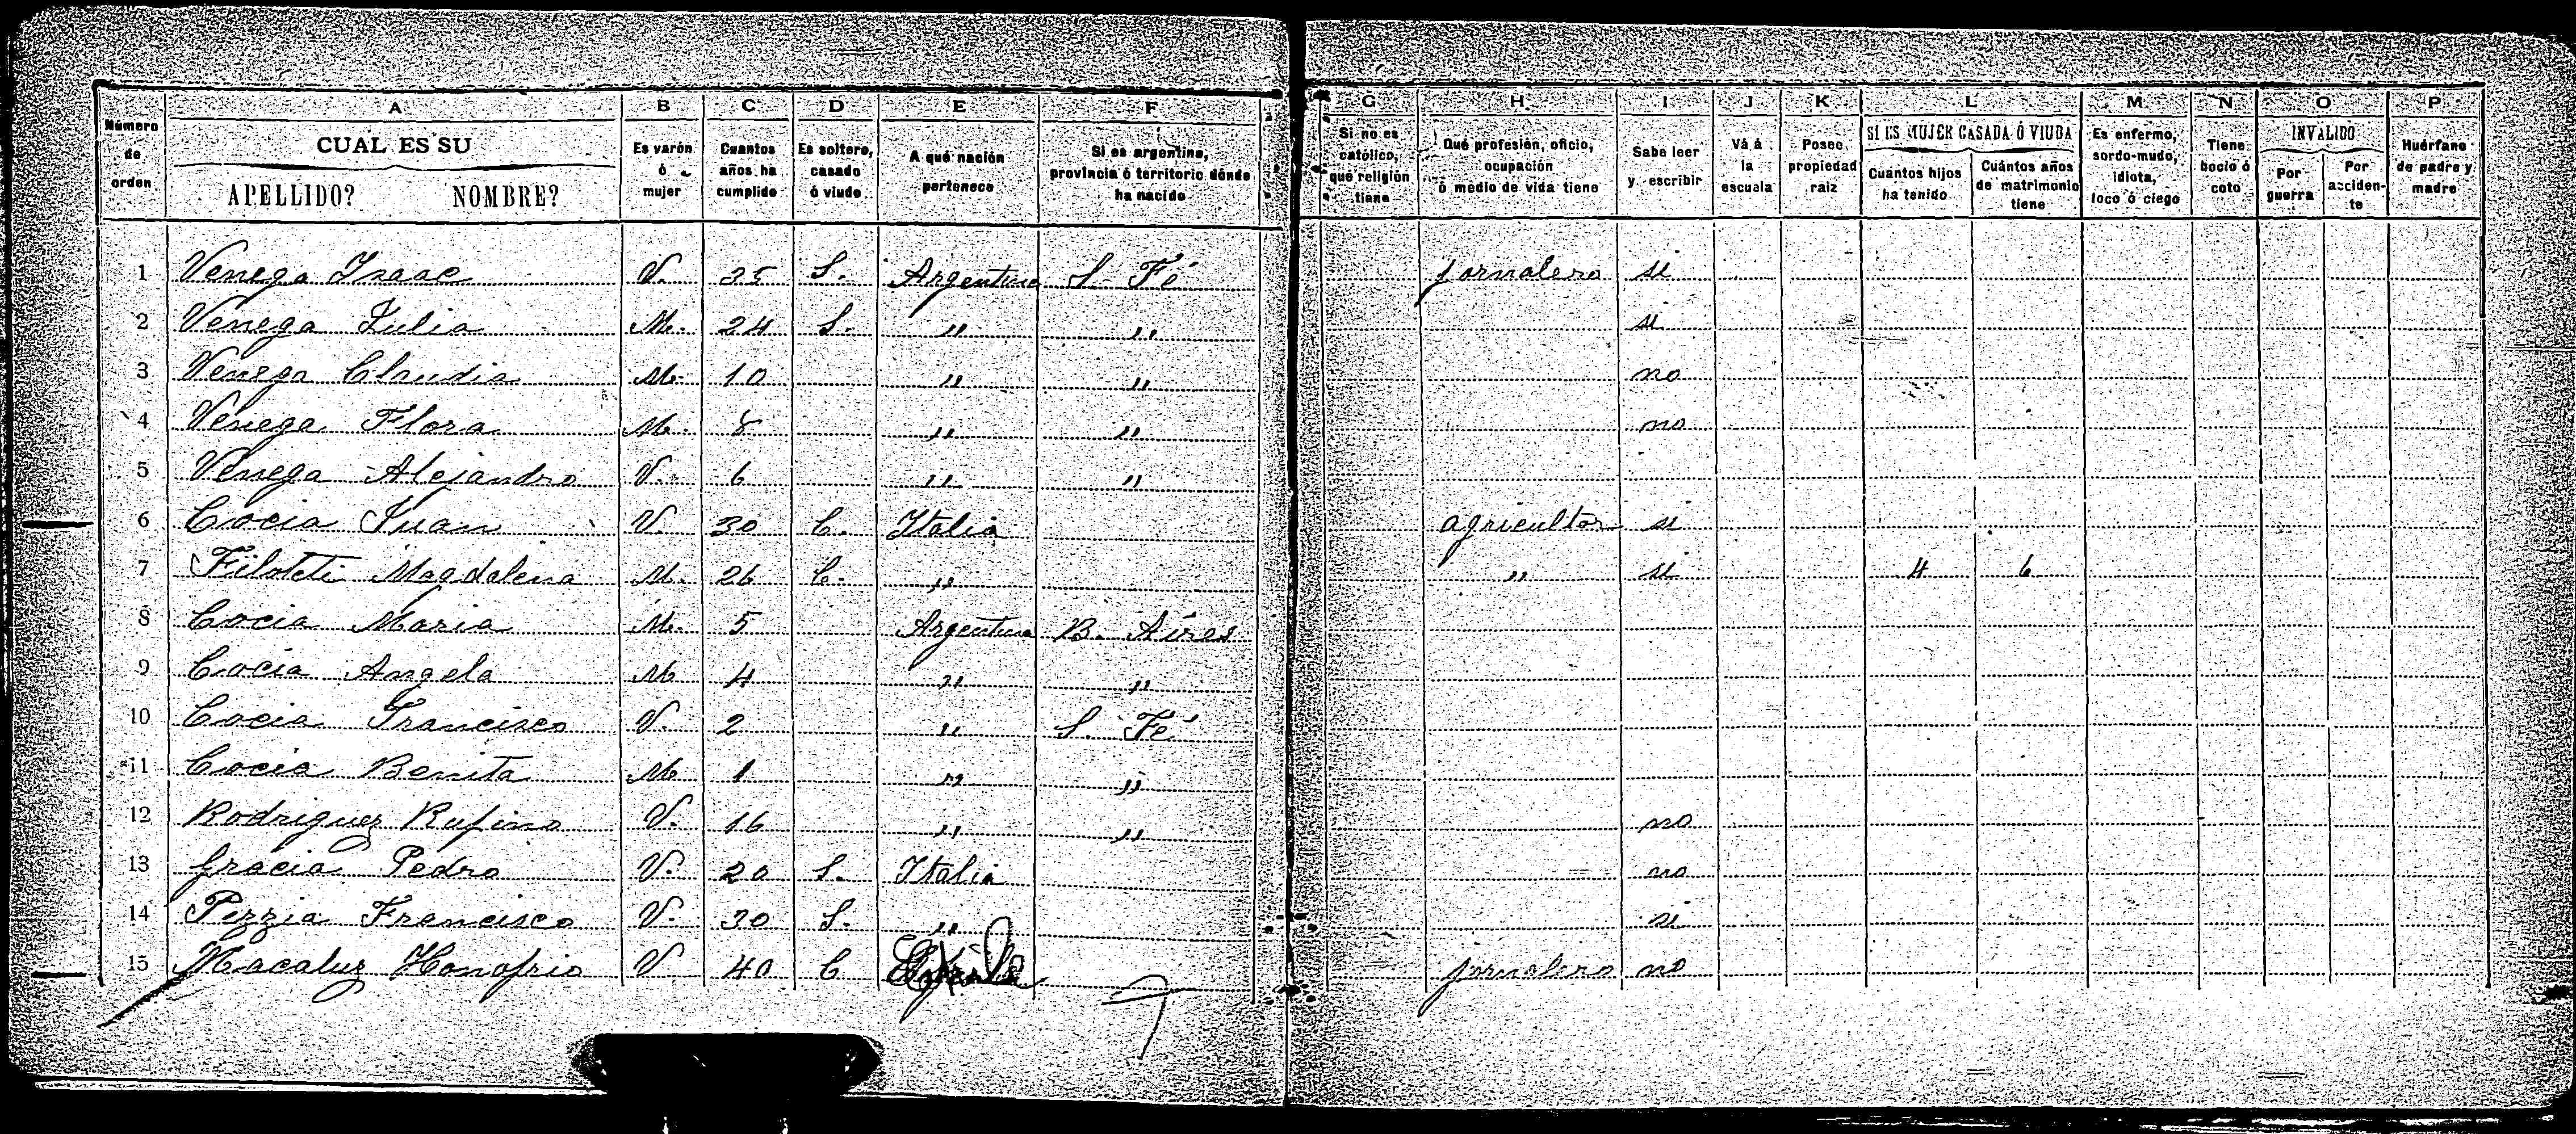 A B C D E F G H I J K L M N O P
Número de orden
CUAL ES SU
APELLIDO? NOMBRE?
Es varón ó mujer
Cuantos años ha cumplido
Es soltero, casado ó viudo
A qué nación pertenece
Si es argentino, provincia ó territorio dónde ha nacido
Si no es católico, qué religión tiene
Qué profesión, oficio, ocupación ó medio de vida tiene
Sabe leer y escribir
Vá á la escuela
Posee propiedad raiz
SI ES MUJER CASADA Ó VIUDA
Cuantos hijos ha tenido
Cuántos años de matrimonio tiene
Es enfermo, sordo-mudo, idiota, loco ó ciego
Tiene bocio ó coto
INVALIDO
Por guerra
Por acciden-te
Huérfano de padre y madre
1 Venega Isaac V. 35 S. Argentina S. Fé jornalero si
2 Venega Julia M. 24 S. " " si
3 Venega Claudia M. 10 " " no
4 Venega Flora M. 8 " " no
5 Venega Alejandro V. 6 " "
6 Cocia Juan V. 30 C. Italia agricultor si
7 Filoteti Magdalena M. 26 C. " " si 4 6
8 Cocia Maria M. 5 Argentina B. Aires
9 Cocia Angela M 4 " "
10 Cocia Francisco V. 2 " S. Fé
11 Cocia Benita M 1 " "
12 Rodriguez Rufino V. 16 " " no
13 Gracia Pedro V. 20 S. Italia no
14 Pezzia Francisco V. 30 S. " si
15 Macaluz Honofrio V 40 C jornalero no